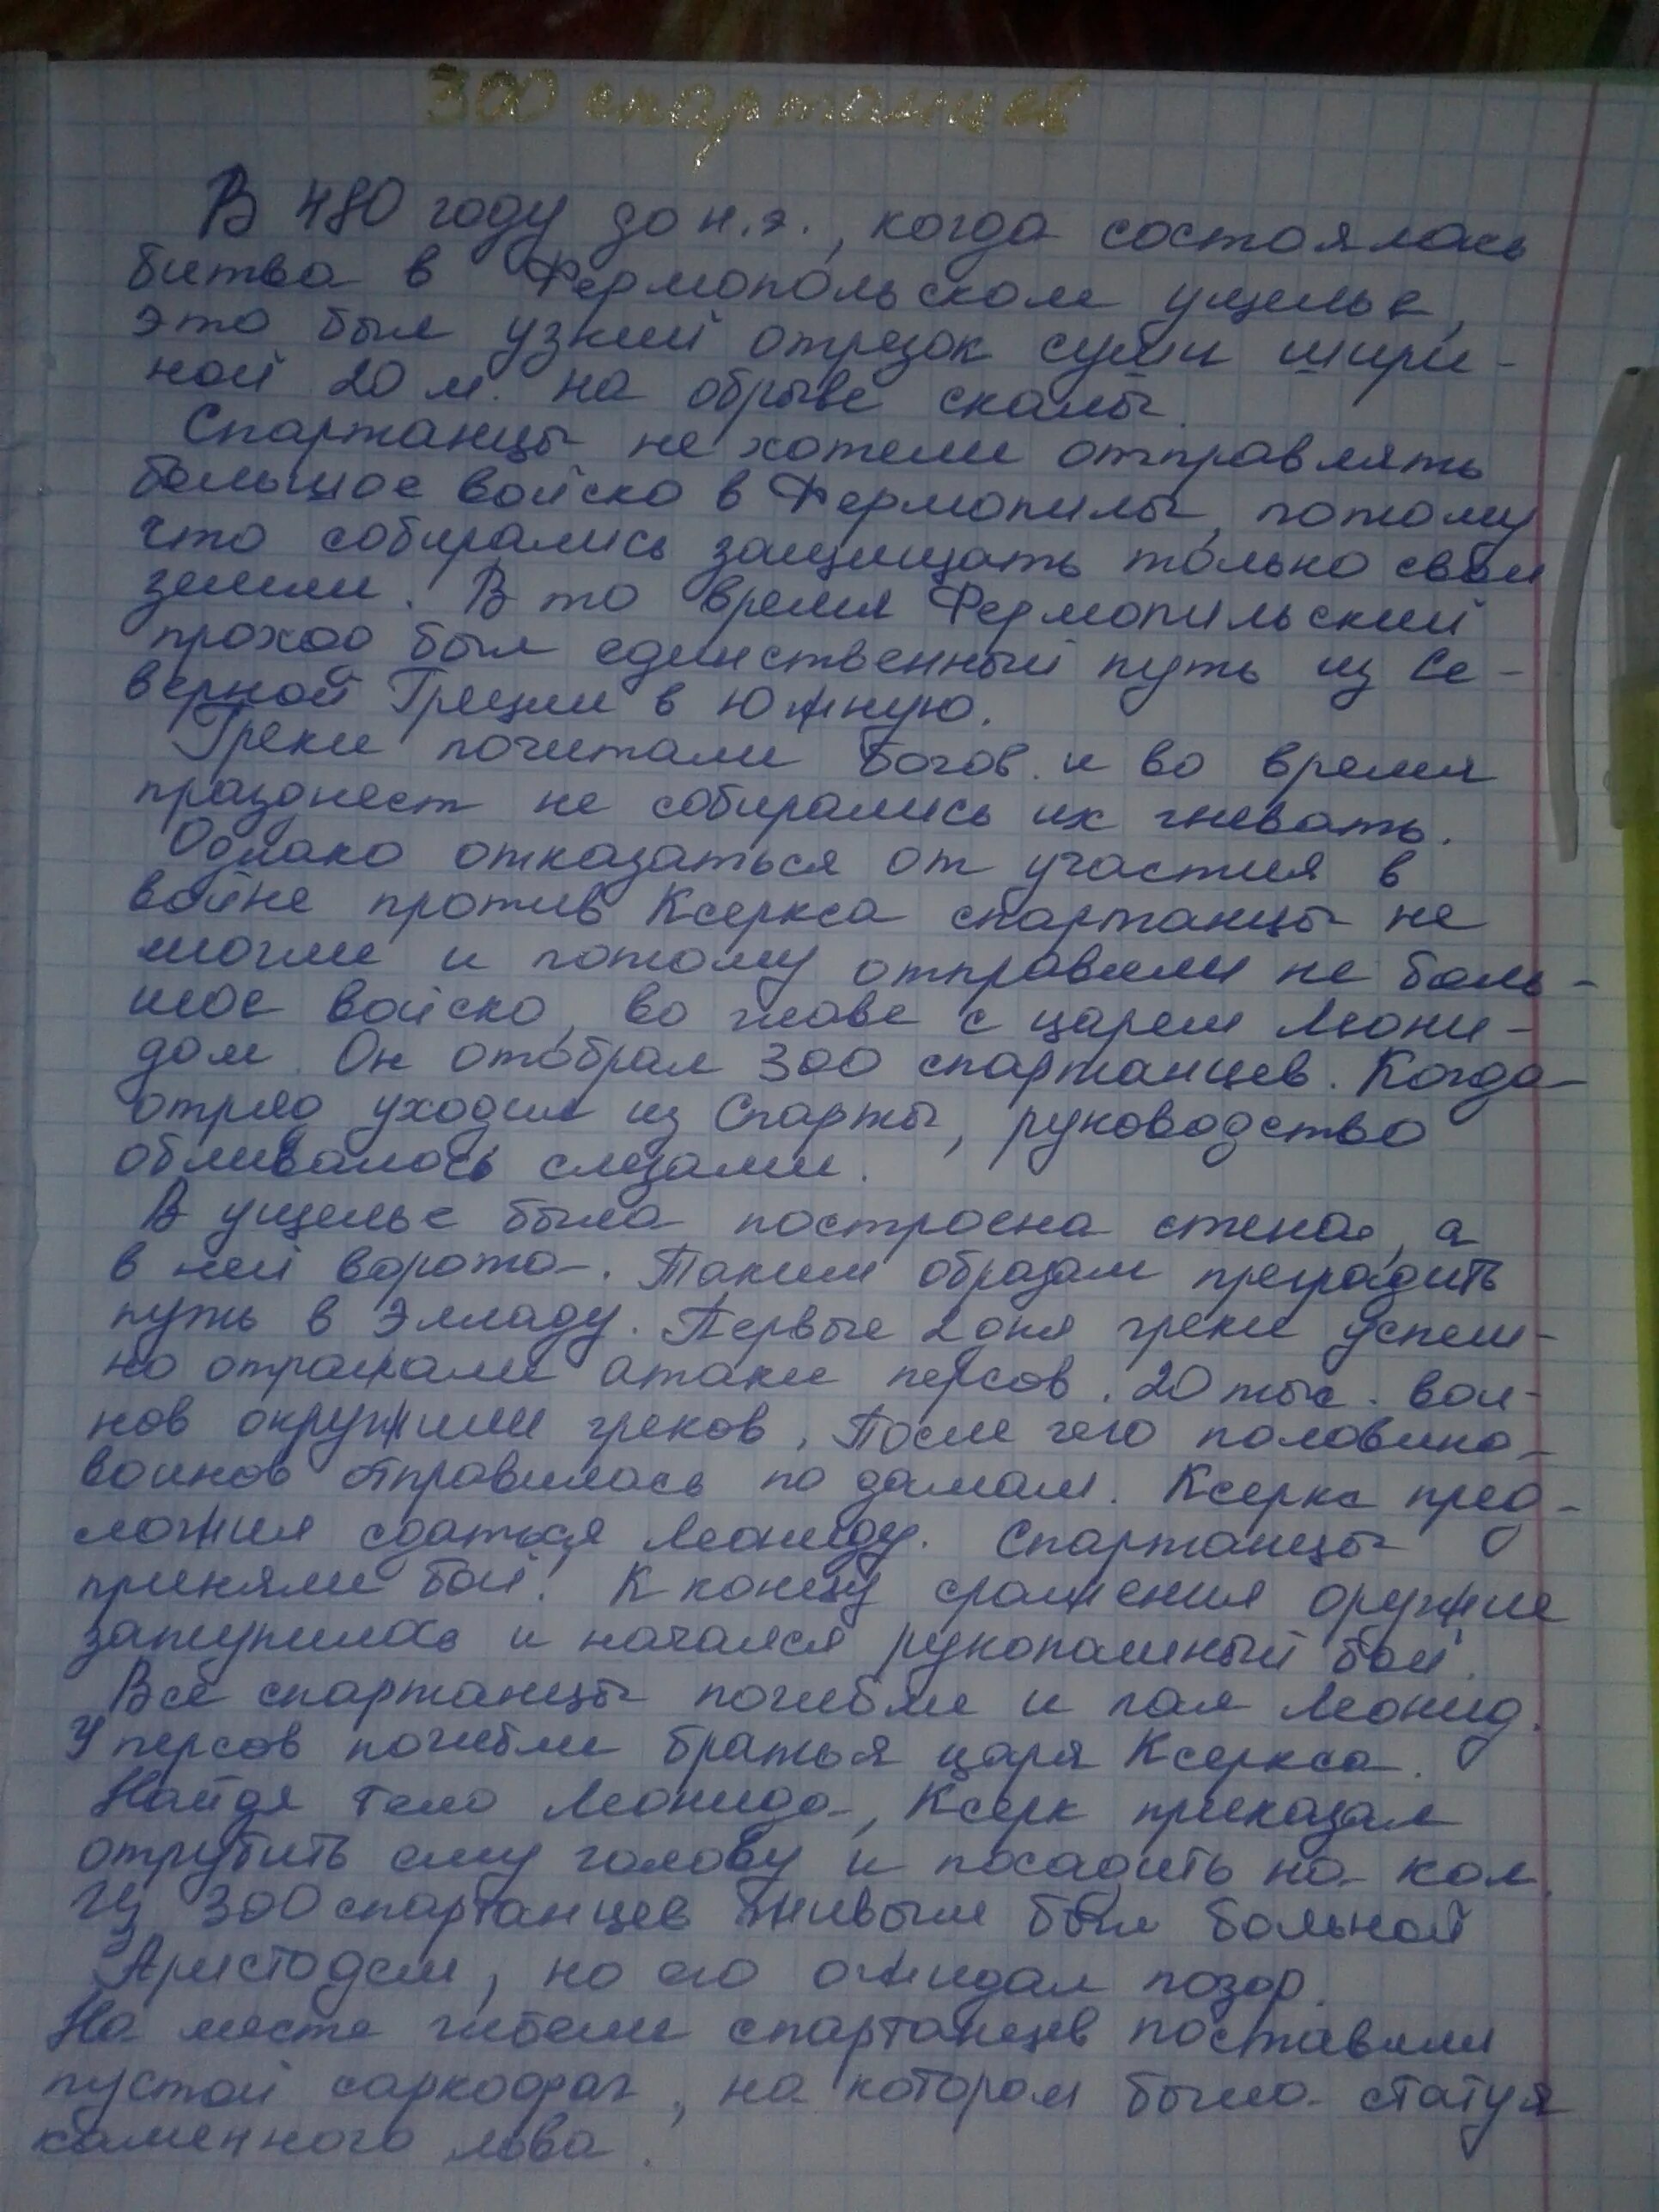 300 спартанцев
В 480 году до н.э., когда состоялась
битва в Фермопольском ущелье,
это был узкий отрезок суши шири-
ной 20 м. на обрыве скалы.
Спартанцы не хотели отправлять
большое войско в Фермопилы, потому
что собирались защищать только свои
земли. В то время Фермопильский
проход был единственный путь из Се-
верной Греции в Южную.
Греки почитали Богов и во время
празднеств не собирались их гневать.
Однако отказаться от участия в
войне против Ксеркса спартанцы не
могли и потому отправили не боль-
шое войско, во главе с царем Леони-
дом. Он отобрал 300 спартанцев. Когда
отряд уходил из Спарты, руководство
обливалось слезами.
В ущелье была построена стена, а
в ней ворота. Таким образом преградить
путь в Элладу. Первые 2 дня греки успеш-
но отражали атаки персов. 20 тыс. вои-
нов окружили греков. После чего половина
воинов отправилась по домам. Ксеркс пред-
ложил сдаться Леониду. Спартанцы
приняли бой. К концу сражения оружие
затупилось и начался рукопашный бой.
Все спартанцы погибли и пал Леонид.
У персов погибли братья царя Ксеркса.
Найдя тело Леонида, Ксерк приказал
отрубить ему голову и посадить на кол.
Из 300 спартанцев живым был больной
Аристодем, но его ожидал позор.
На месте гибели спартанцев поставили
пустой саркофаг, на котором была статуя
каменного льва.